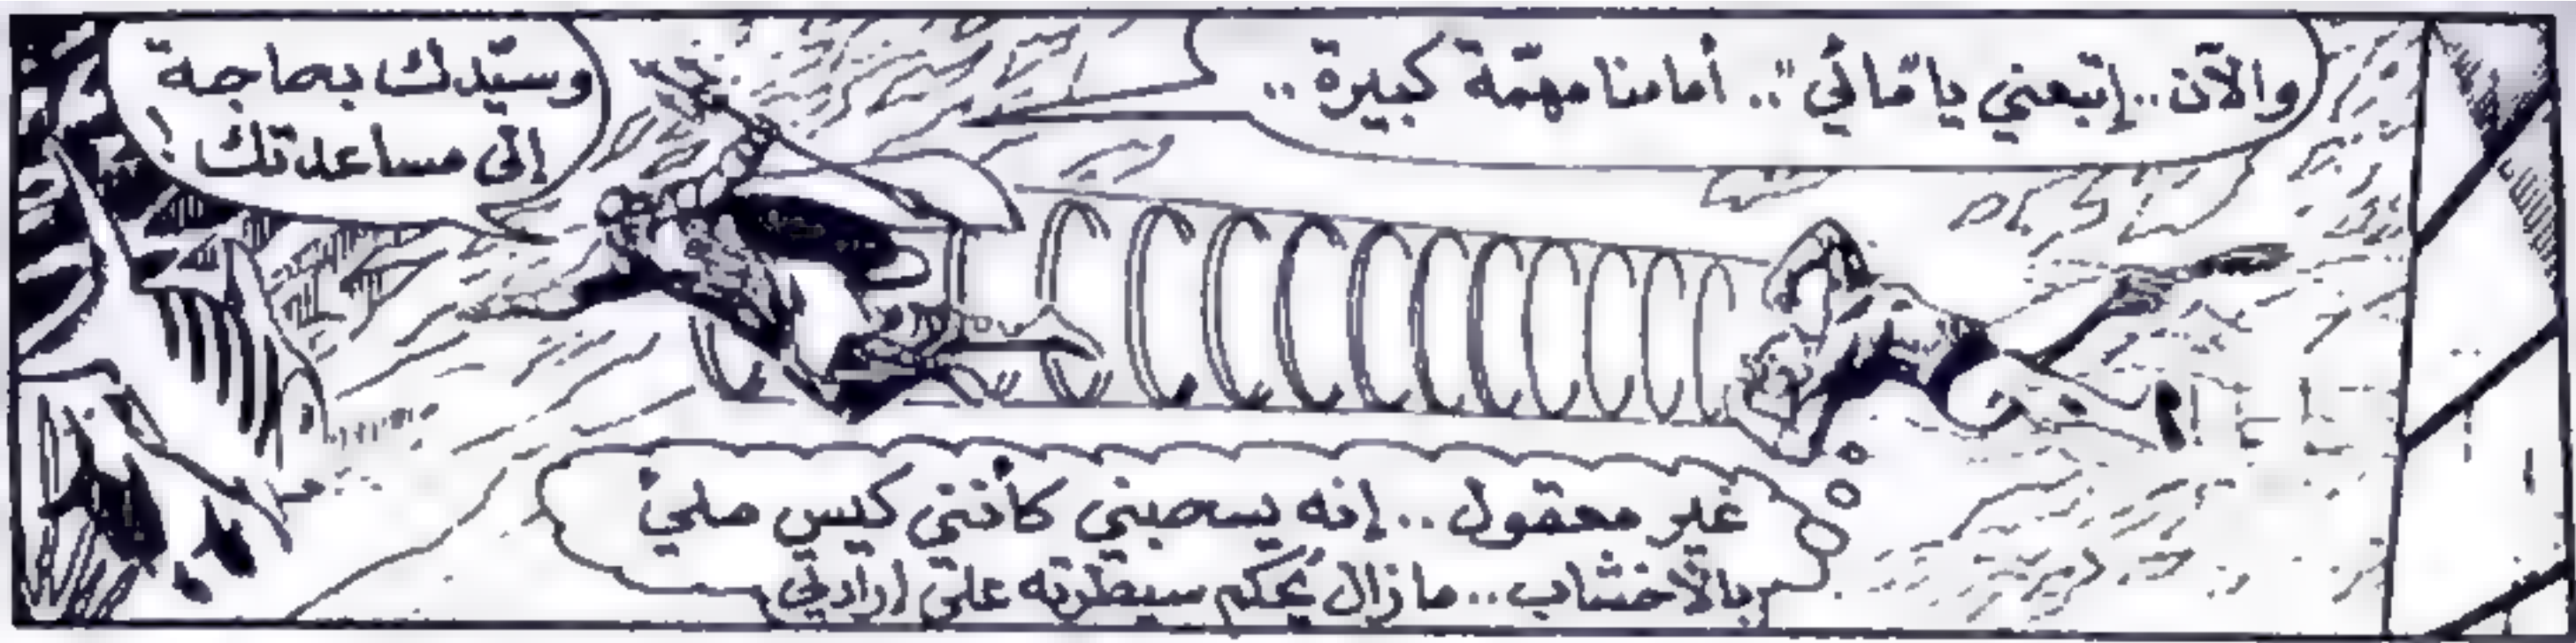 والآن..إتبعني ياقائي".. أمامنا مهمّة كبيرة..
وسيّدك بحاجة
إلى مساعدتك!
غير معقول..إنه يسحبني كأنني كيس مليئ
بالأخشاب..مازال يُحكم سيطرته على إرادتي